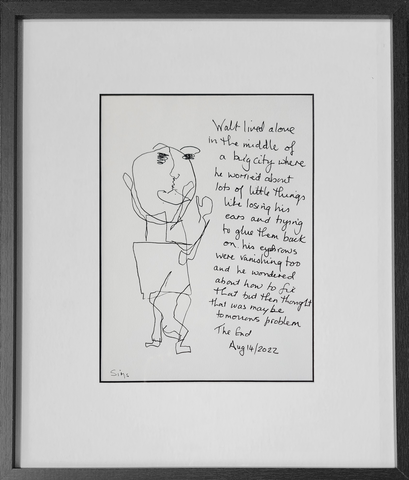 Walt lived alone
in the middle of
a big city where
he worried about
lots of little things
like losing his
ears and trying
to glue them back
on his eyebrows
were vanishing too
and he wondered
about how to fix
that but then thought
that was maybe
tomorrows problem
The End
Aug 14/2022